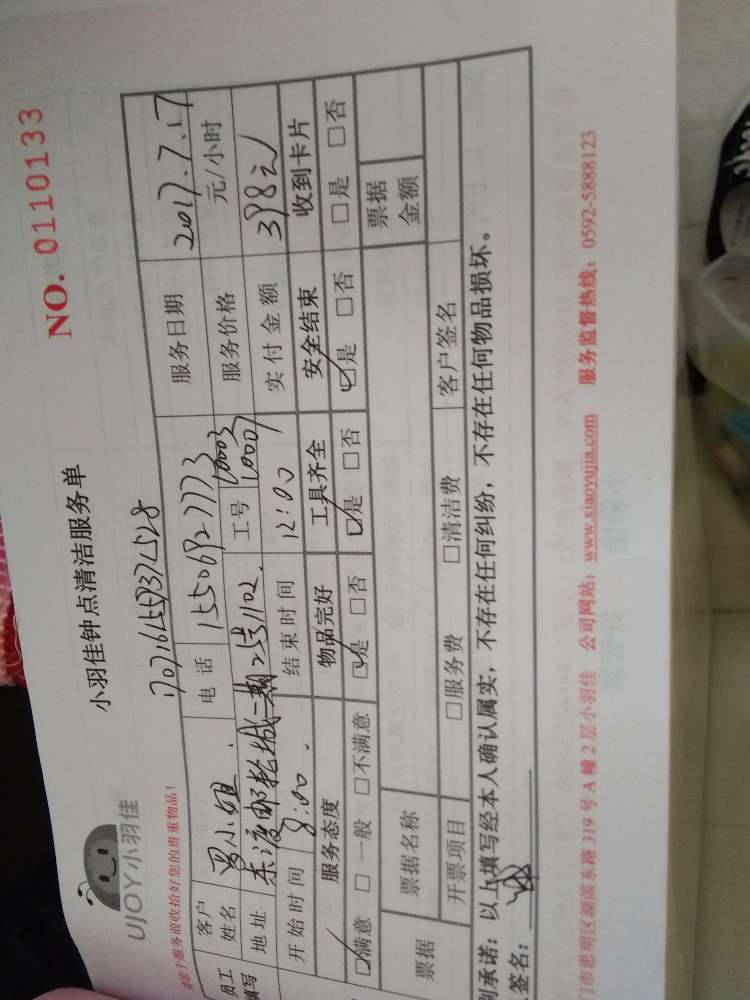 NO. 0110133
小羽佳钟点清洁服务单
UJOY小羽佳
服务前收拾好您的贵重物品!
客户姓名 电话 15506927773 服务日期 2017.7.17
地址 东渡邮轮城二期2号1102. 工号 10003 10007 服务价格 元/小时
开始时间 8:00. 结束时间 12:00 实付金额 398元
服务态度 物品完好 工具齐全 安全结束 收到卡片
☑满意 □一般 □不满意 ☑是 □否 ☑是 □否 ☑是 □否 □是 □否
票据 票据名称 票据金额
开票项目 □服务费 □清洁费 客户签名
承诺:以上填写经本人确认属实,不存在任何纠纷,不存在任何物品损坏。
签名:
门市思明区湖滨东路319号A幢2层小羽佳 公司网站:www.xiaoyujia.com 服务监督热线:0592-5888123